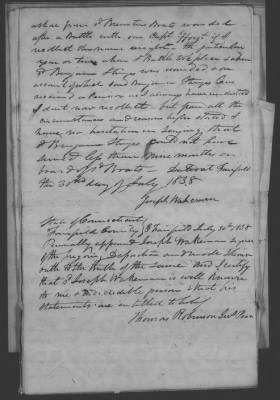 as has gun & Brewsters Boats wounded
after a Battle with one Capt Hoyt if I
recollect the name
year or time when & Battle took place when
& Benjamin Sturges was wounded on
account of which said Benjamin Sturges
a Pension as I always have understood
I dont now recollect but from all the
circumstances and reasons before stated I
have no hesitation in saying that
& Benjamin Sturges could not have
served less than Nine months on
board of Sd Boats. Dated at Fairfield
the 30th day of July 1838
Joseph Wakeman
State of Connecticut
Fairfield County SS Fairfield July 30th 1838
Personally appeared Joseph Wakeman signer
of the foregoing Deposition and made Oath
to the truth of the same And I certify
that Sd Joseph Wakeman is well known
to me a credible person & that his
statements are entitled to belief
Thomas Robinson Jus Peace